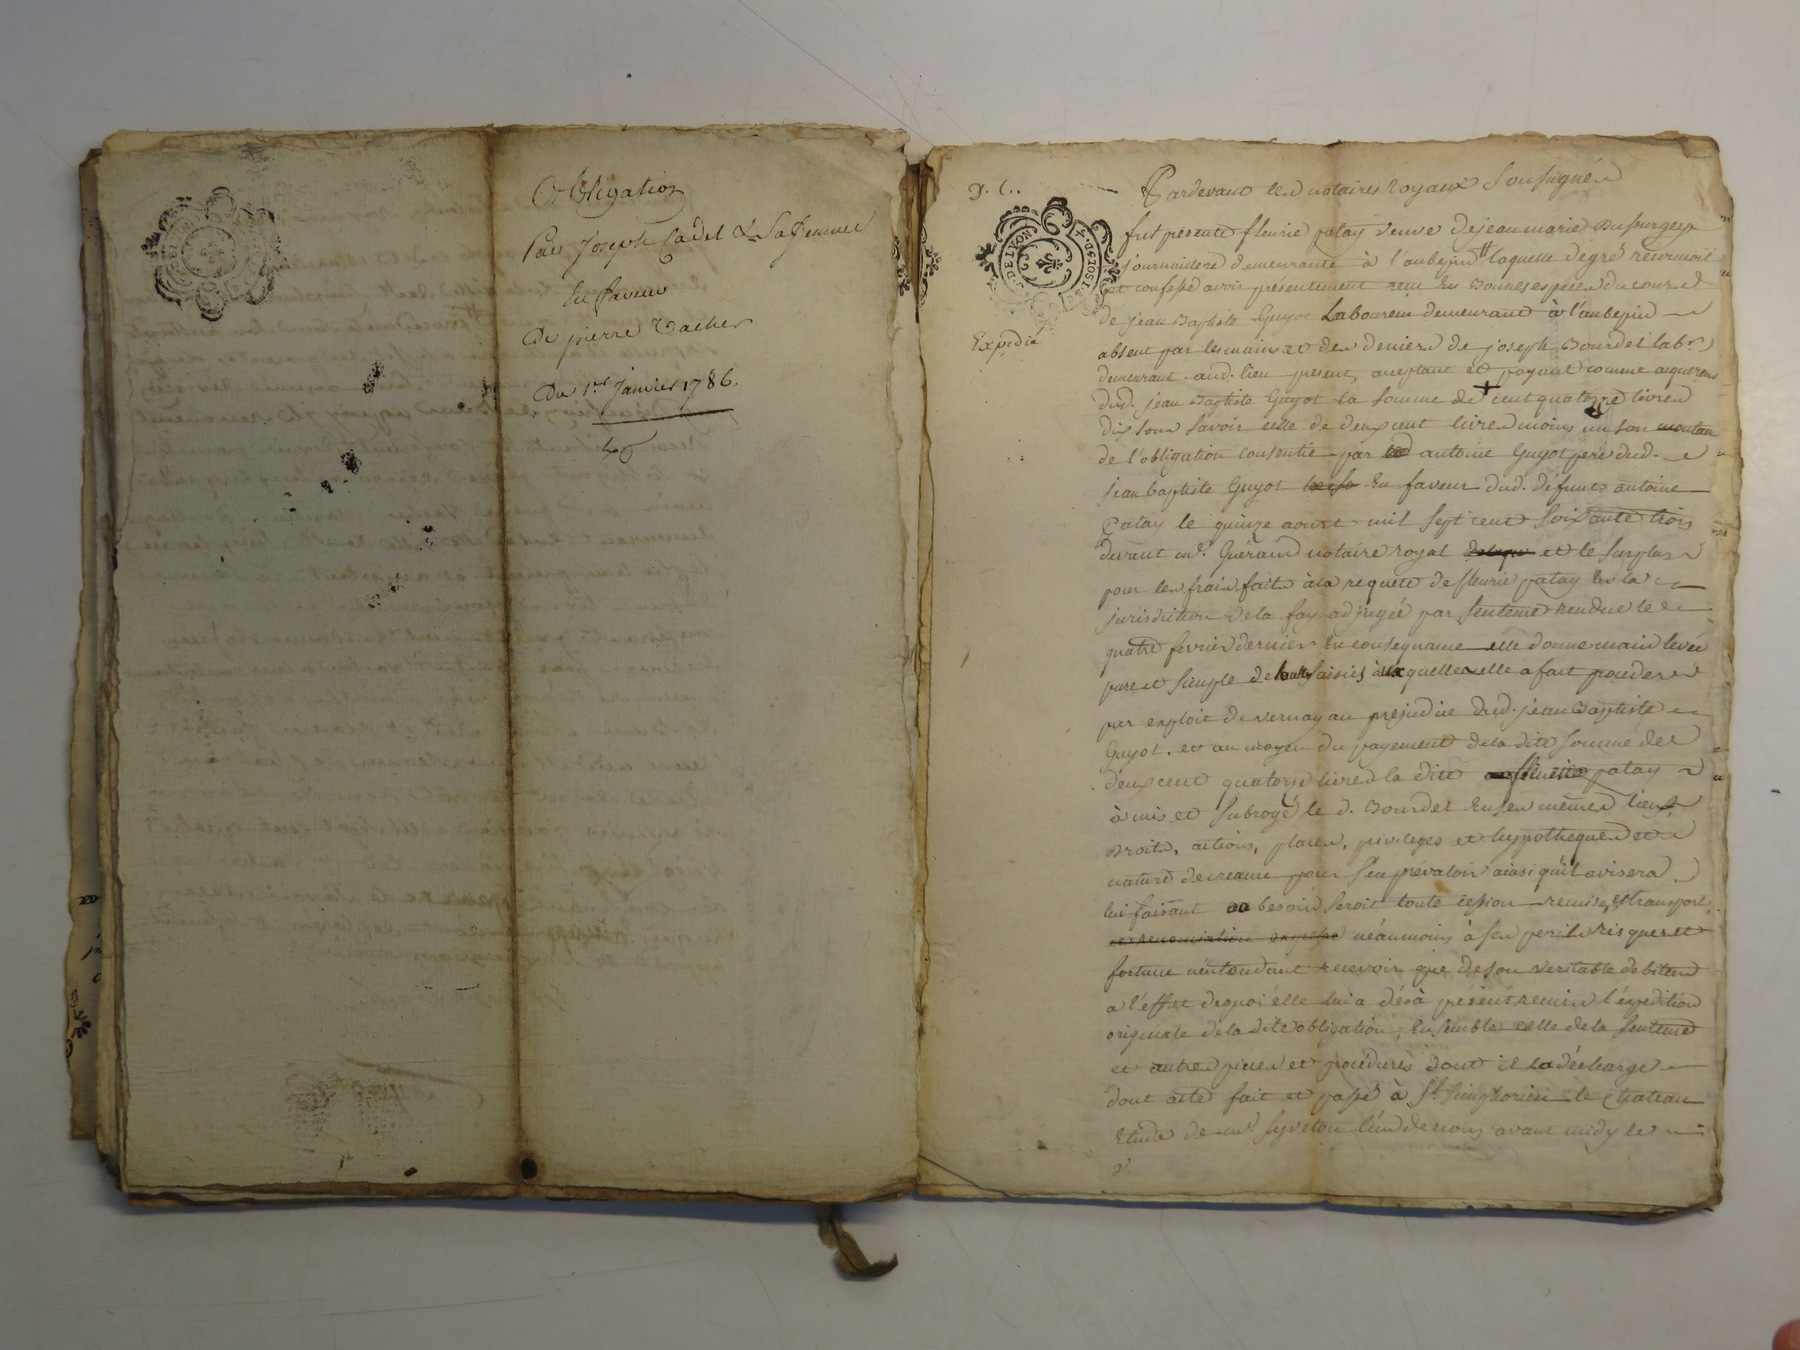 Obligation
Par Joseph Cadet & Sa femme
En faveur
De pierre Vacher
Du 1er Janvier 1786.
46
D. C.
Expedié
G. DE LYON
2. SOLS D.
Pardevant les notaires royaux soussignés
fut presente fleurie patay veuve de jean marie Dussurgey
journaillere demeurante à l'aubepin # laquelle de gré reconnoit
et confesse avoir presentement reçu en bonnes especes du cours
de jean Baptiste Guyot Laboureur demeurant à l'aubepin
absent par les mains et des deniers de joseph Bourdet labr.
demeurant aud. lieu present, acceptant et payant comme aquereur
dud. jean Baptiste Guyot la somme de + cent quatorze livres
dix sous savoir celle de deux cent livres moins un son montan
de l'obligation consentie par antoine Guyot pere dud.
jean baptiste Guyot En faveur dud. défunt antoine
Patay le quinze aoust mil sept cent soixante trois
devant me. Guérand notaire royal et le surplus
pour les frais faits à la requete de fleurie patay en la
jurisdiction de la fay adjugée par sentence rendue le
quatre fevrier dernier En consequence elle donne main levée
pure et simple de saisies à quelles elle a fait proceder
par exploit de vernay au prejudice dud. jean Baptiste
Guyot. et au moyen du payement de la dite somme de
deux cent quatorze livres la dite fleurie patay
à mis et subrogé le d. Bourdet En ses mêmes lieux,
Droits, actions, places, privileges et hypotheques et
nature de creance pour s'en prevaloir ainsi qu'il avisera
lui faisant ou besoin seroit toute cession remise, et transport,
et renonciation expresse néanmoins à ses perils risques et
fortune n'entendant recevoir que de son veritable debiteur
a l'effet de quoi elle lui a dès à présent remis l'expedition
originale de la dite obligation, Ensemble celle de la sentence
et autres pieces et procédures dont il la décharge
dont acte fait et passé à St. Simphorien le chateau
Etude de me. Syveton l'un de nous avant midy le